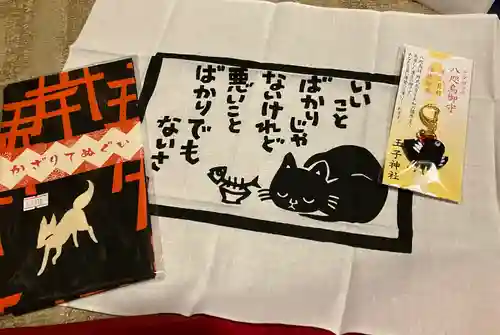 いいこと
ばかりじゃ
ないけれど
悪いこと
ばかりでも
ないさ
かざりてぬぐい
八咫烏御守
王子神社